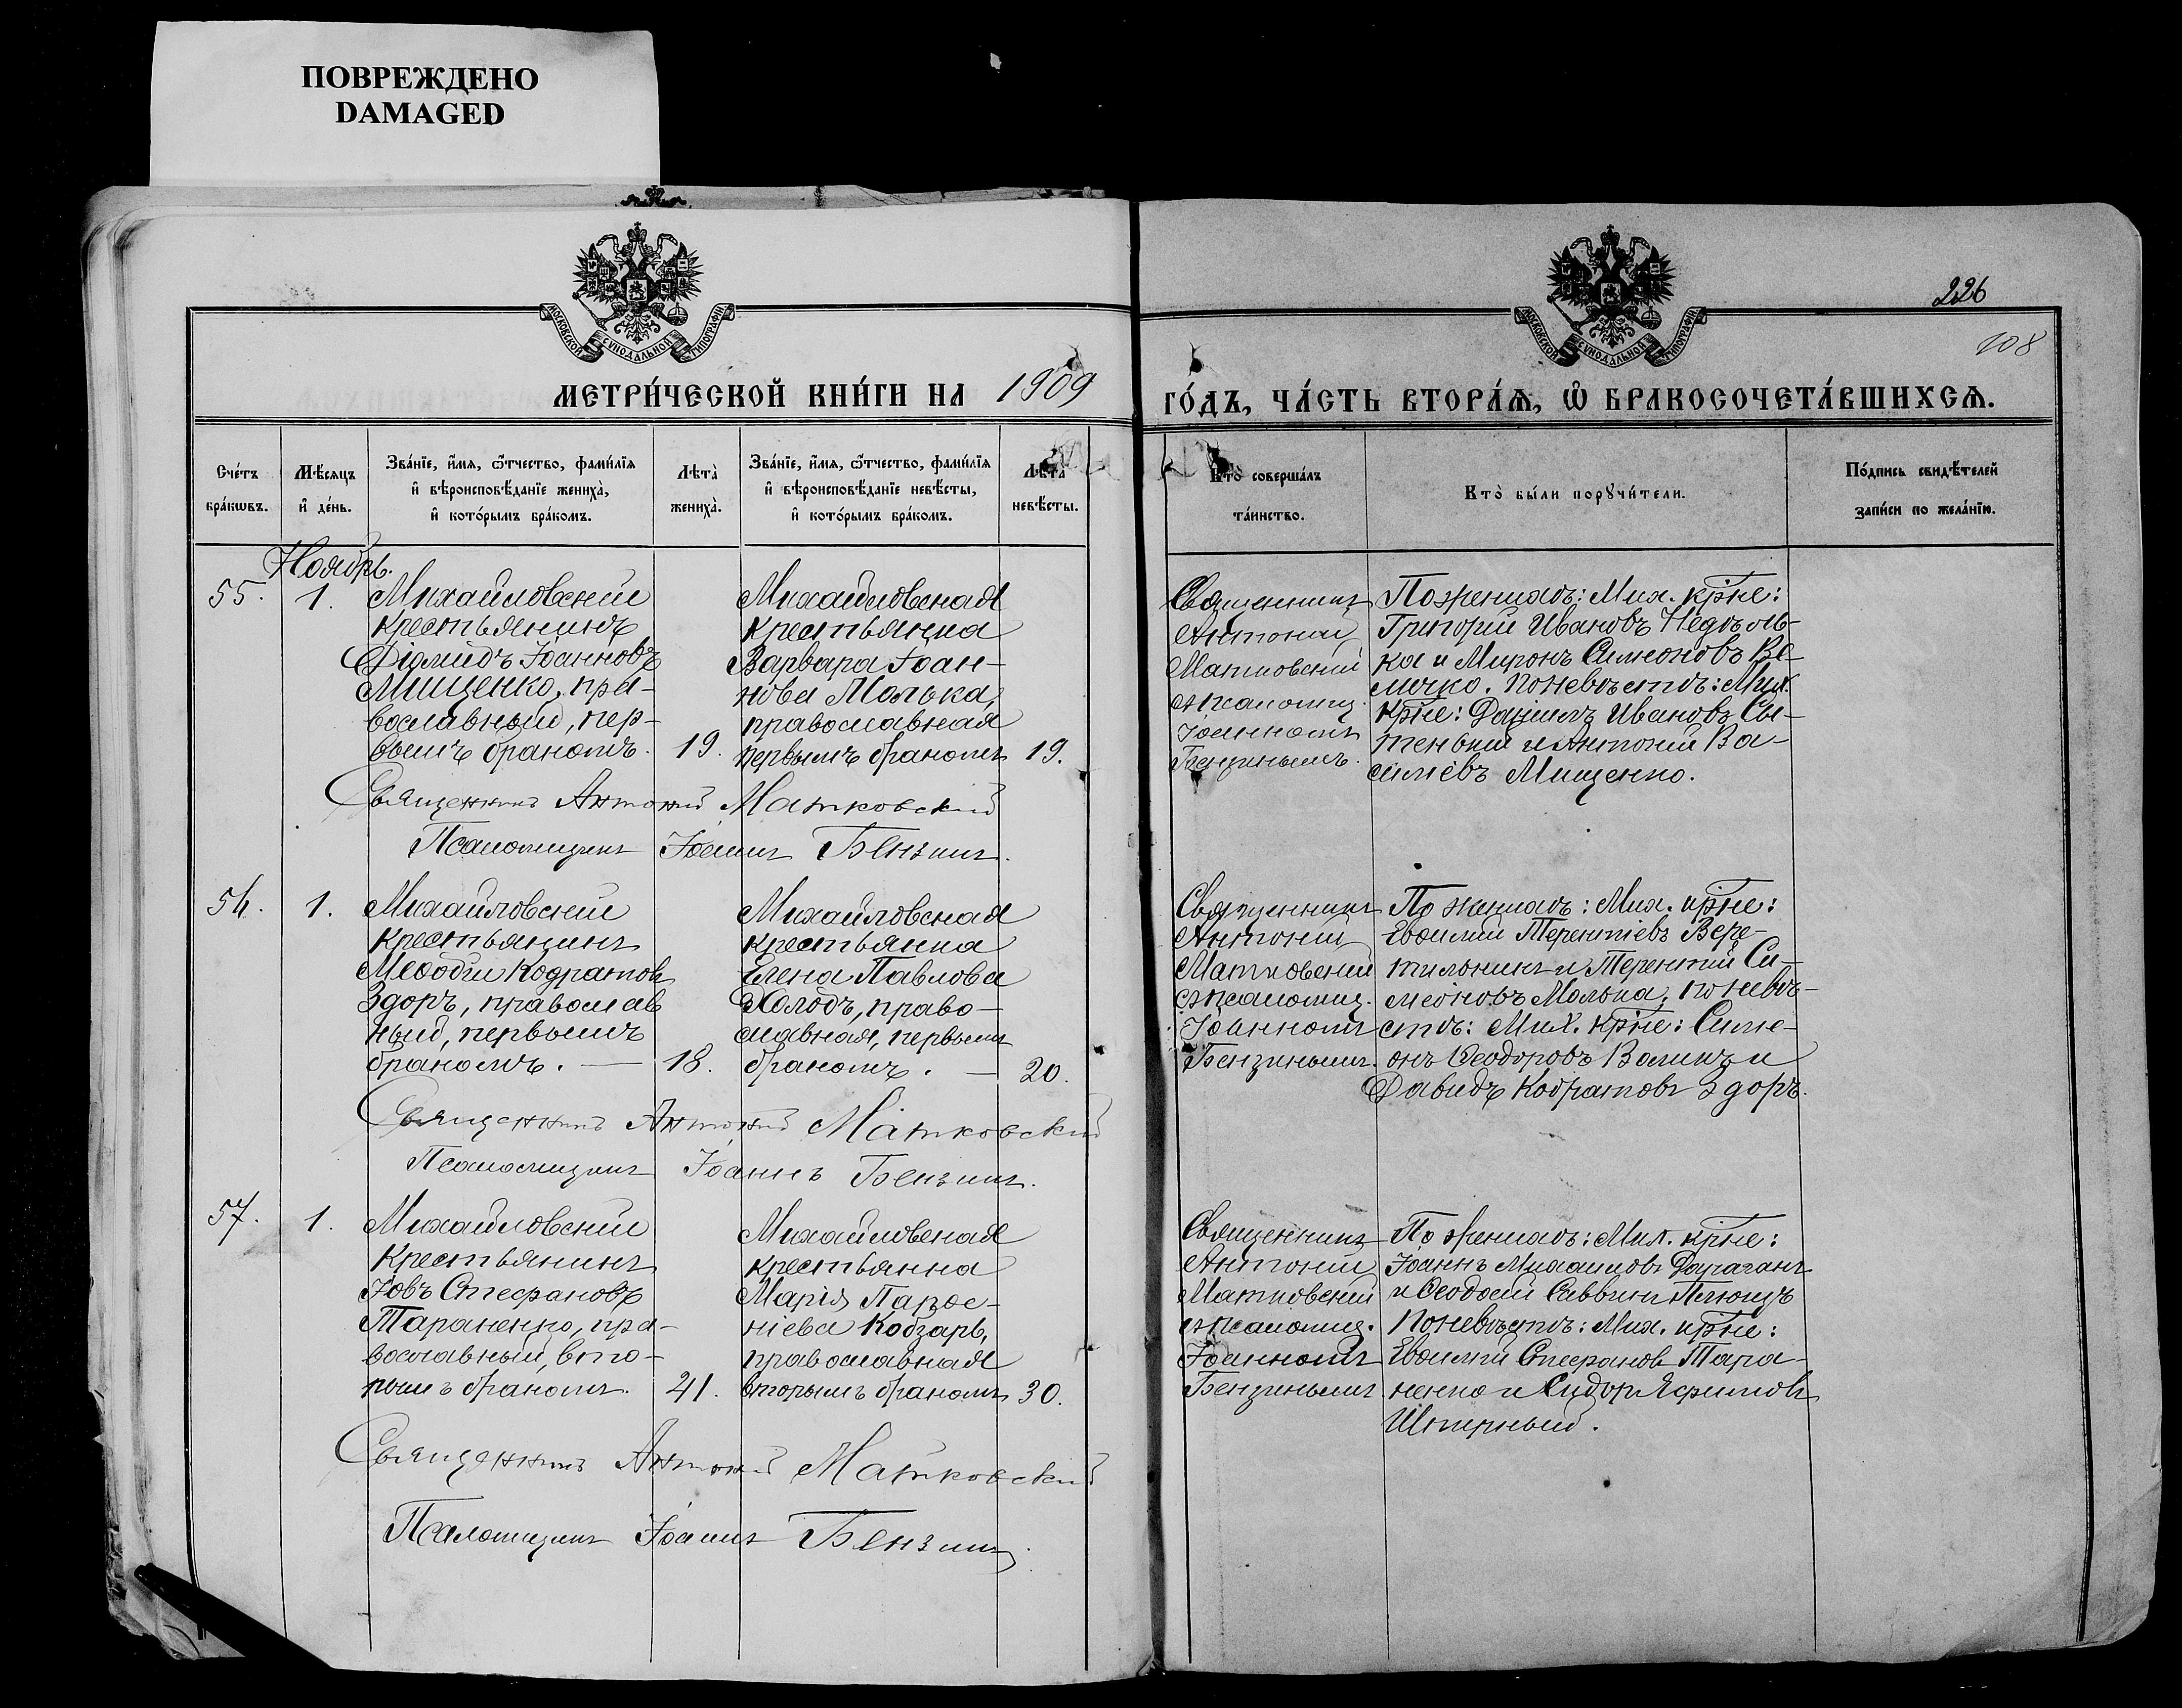 ПОВРЕЖДЕНО
DAMAGED
МОСКОВСКОЙ СѴНОДАЛЬНОЙ ТИПОГРАФІИ
МОСКОВСКОЙ СѴНОДАЛЬНОЙ ТИПОГРАФІИ
226
108
МЕТРИ́ЧЕСКОЙ КНИ́ГИ НА 1909
ГО́ДЪ, ЧА́СТЬ ВТОРА́Ѧ, Ѽ БРАКОСОЧЕТА́ВШИХСѦ.
Сче́тъ
бра́кѡвъ.
Мѣ́сяцъ
и҆ де́нь.
Зва́нїе, и҆́мѧ, ѻ҆́тчество, фами́лїѧ
и҆ вѣроисповѣ́данїе жениха̀,
и҆ кото́рымъ бра́комъ.
Лѣ́та̀
жениха̀.
Зва́нїе, и҆́мѧ, ѻ҆́тчество, фами́лїѧ
и҆ вѣроисповѣ́данїе невѣ́сты,
и҆ кото́рымъ бра́комъ.
Лѣ́та̀
невѣ́сты.
Кто̀ соверша́лъ
та́инство.
Кто̀ бы́ли порꙋчи́тели.
По́дпись свидѣ́телей
за́писи по жела́нїю.
Ноябрь.
55.
1.
Михайловскій
крестьянинъ
Діомидъ Іоанновъ
Мищенко, пра-
вославный, пер-
вымъ бракомъ.
19.
Михайловская
крестьянка
Варвара Іоан-
нова Молька,
православная
первымъ бракомъ
19.
Священникъ
Антоній
Матковскій
съ псаломщ.
Іоанномъ
Бензинымъ.
По женихѣ: Мих. кр̅не:
Григорій Ивановъ Недѣль-
ка и Миронъ Симеоновъ Ве-
личко. По невѣстѣ: Мих.
кр̅не: Даніилъ Ивановъ Сы-
тенькій и Антоній Ва-
силіевъ Мищенко.
Священникъ Антоній Матковскій
Псаломщикъ Іоаннъ Бензинъ.
56.
1.
Михайловскій
крестьянинъ
Меѳодій Кодратовъ
Здоръ, православ
ный, первымъ
бракомъ. —
18.
Михайловская
крестьянка
Елена Павлова
Холодъ, право-
славная, первымъ
бракомъ. —
20.
Священникъ
Антоній
Матковскій
съ псаломщ.
Іоанномъ
Бензинымъ.
По женихѣ: Мих. кр̅не:
Евѳимій Терентіевъ Вере-
тильникъ и Терентій Си-
меоновъ Молька, по невѣ-
стѣ: Мих. кр̅не: Симе-
онъ Ѳеодоровъ Воликъ и
Давидъ Кодратовъ Здоръ.
Священникъ Антоній Матковскій
Псаломщикъ Іоаннъ Бензинъ.
57.
1.
Михайловскій
крестьянинъ
Іовъ Стефановъ
Тараненко, пра-
вославный, вто-
рымъ бракомъ.
41.
Михайловская
крестьянка
Марія Парѳе-
ніева Кобзарь,
православная
вторымъ бракомъ
30.
Священникъ
Антоній
Матковскій
съ псаломщ.
Іоанномъ
Бензинымъ
По женихѣ: Мих. кр̅не:
Іоаннъ Михаиловъ Дараганъ
и Ѳеодосій Саввинъ
По невѣстѣ: Мих. кр̅не:
Евѳимій Стефановъ Тара-
ненко и Сидоръ Яфимовъ
Шпирный.
Священникъ Антоній Матковскій
Псаломщикъ Іоаннъ Бензинъ.